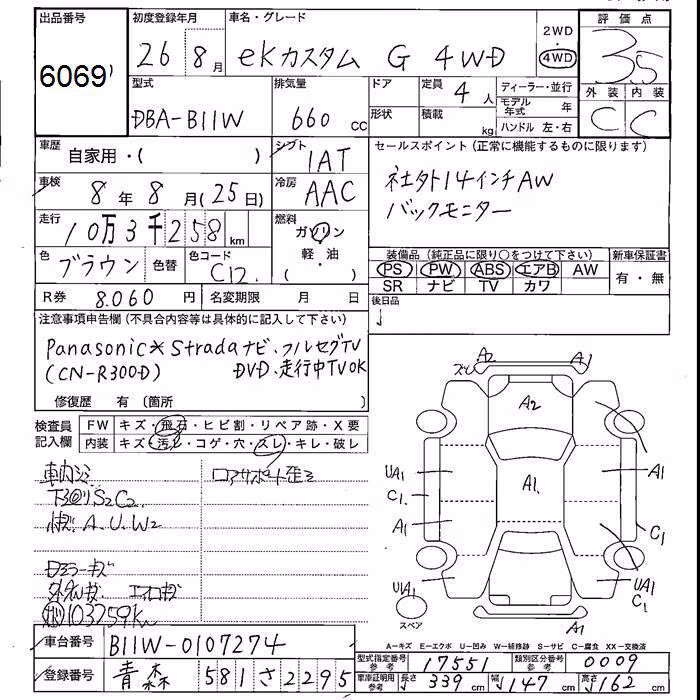 出品番号 初度登録年月 車名・グレード 2WD 評価点
6069 26 8月 eKカスタム G 4WD 4WD 3.5
型式 排気量 ドア 定員 4人 ディーラー・並行 外装 内装
DBA-B11W 660cc 形状 積載 kg モデル年式 年 C C
ハンドル 左・右
車歴 自家用・( ) シフト IAT セールスポイント(正常に機能するものに限ります)
車検 8年 8月(25日) 冷房 AAC 社外14インチAW
走行 10万3千258km 燃料 ガソリン バックモニター
軽・油
( )
色 ブラウン 色替 色コード C12 装備品(純正品に限り○をつけて下さい) 新車保証書
PS PW ABS エアB AW 有・無
SR ナビ TV カワ
R券 8.060円 名変期限 月 日 後日品
注意事項申告欄(不具合内容等は具体的に記入して下さい)
Panasonic Stradaナビ.フルセグTV
(CN-R300D) DVD.走行中TVOK
修復歴 有〔箇所
検査員記入欄 FW キズ・飛石・ヒビ割・リペア跡・X要
内装 キズ・汚レ・コゲ・穴・スレ・キレ・破レ
A2 A1
A2
UA1 A1 A1
C1
A1 C1
UA1 UA1
C1
スペア A1
S2C2
A.U.W2
103259km
A－キズ E－エクボ U－凹み W－補修跡 S－サビ C－腐食 XX－交換済
車台番号 B11W-0107274
型式指定番号 参考 17551 類別区分番号 参考 0009
登録番号 青森 581さ2295
車庫証明用 参考 長さ 339cm 幅 147cm 高さ 162cm